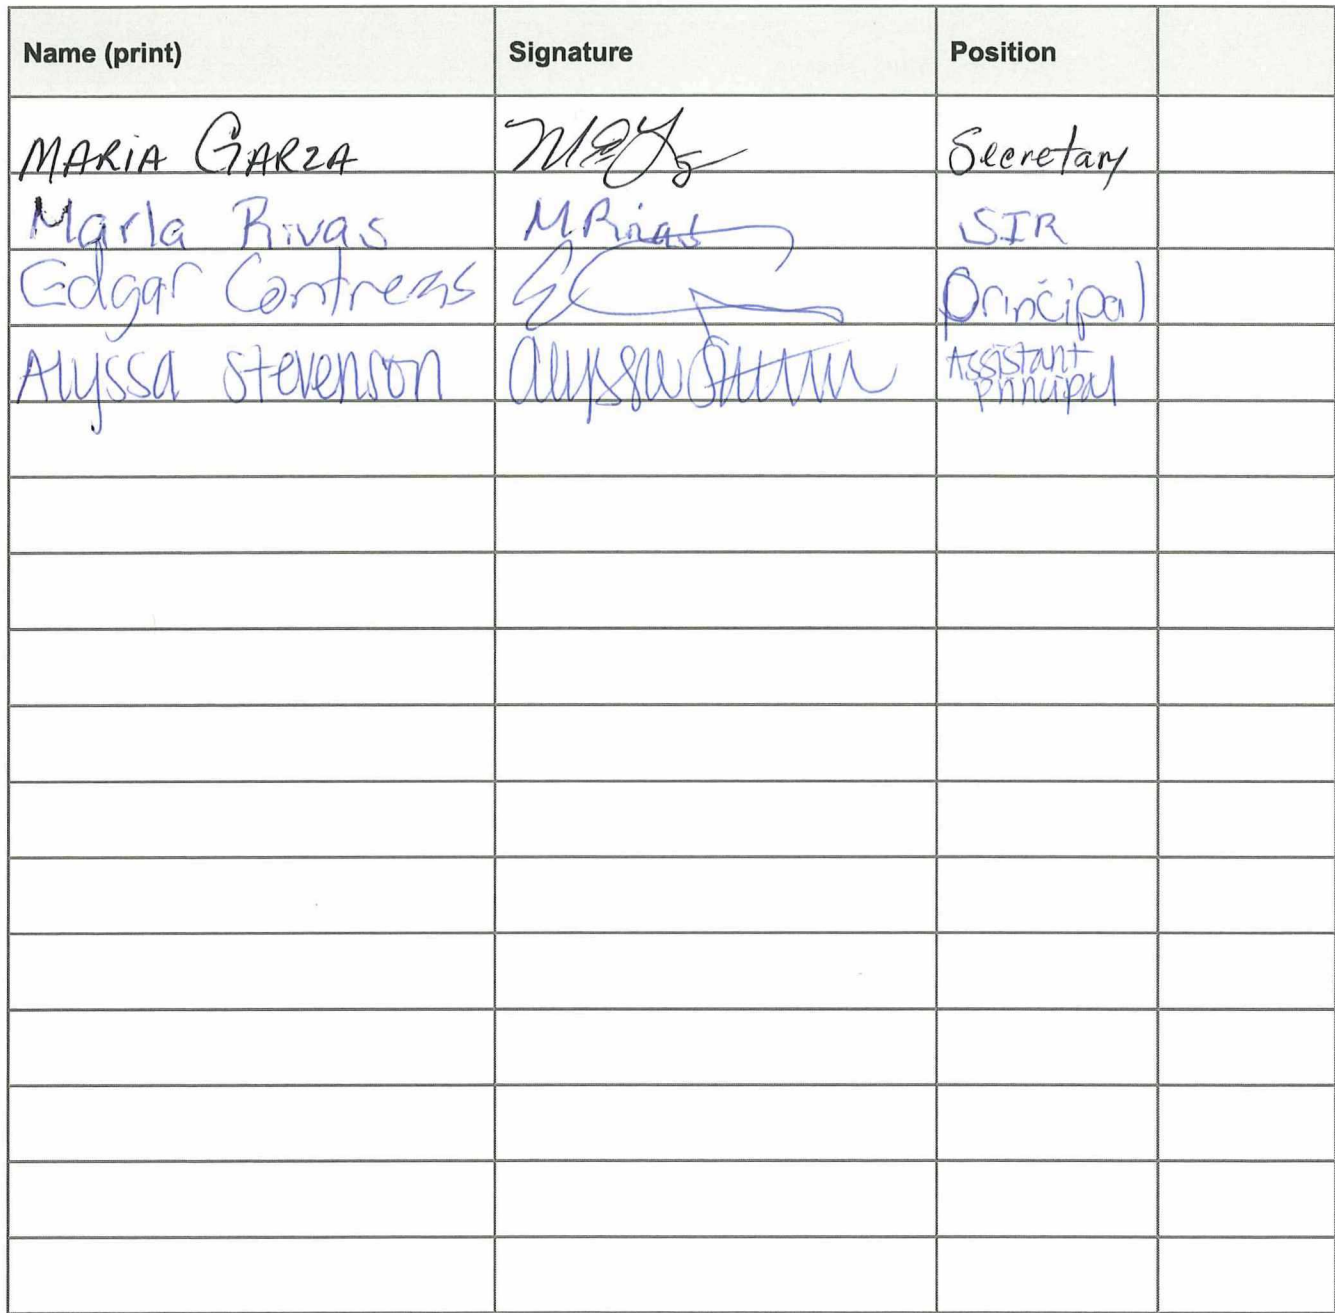 Name (print) Signature Position
MARIA GARZA Secretary
Marla Rivas M Rivas SIR
Edgar Contreras EC Principal
Alyssa Stevenson Alyssa Assistant
principal